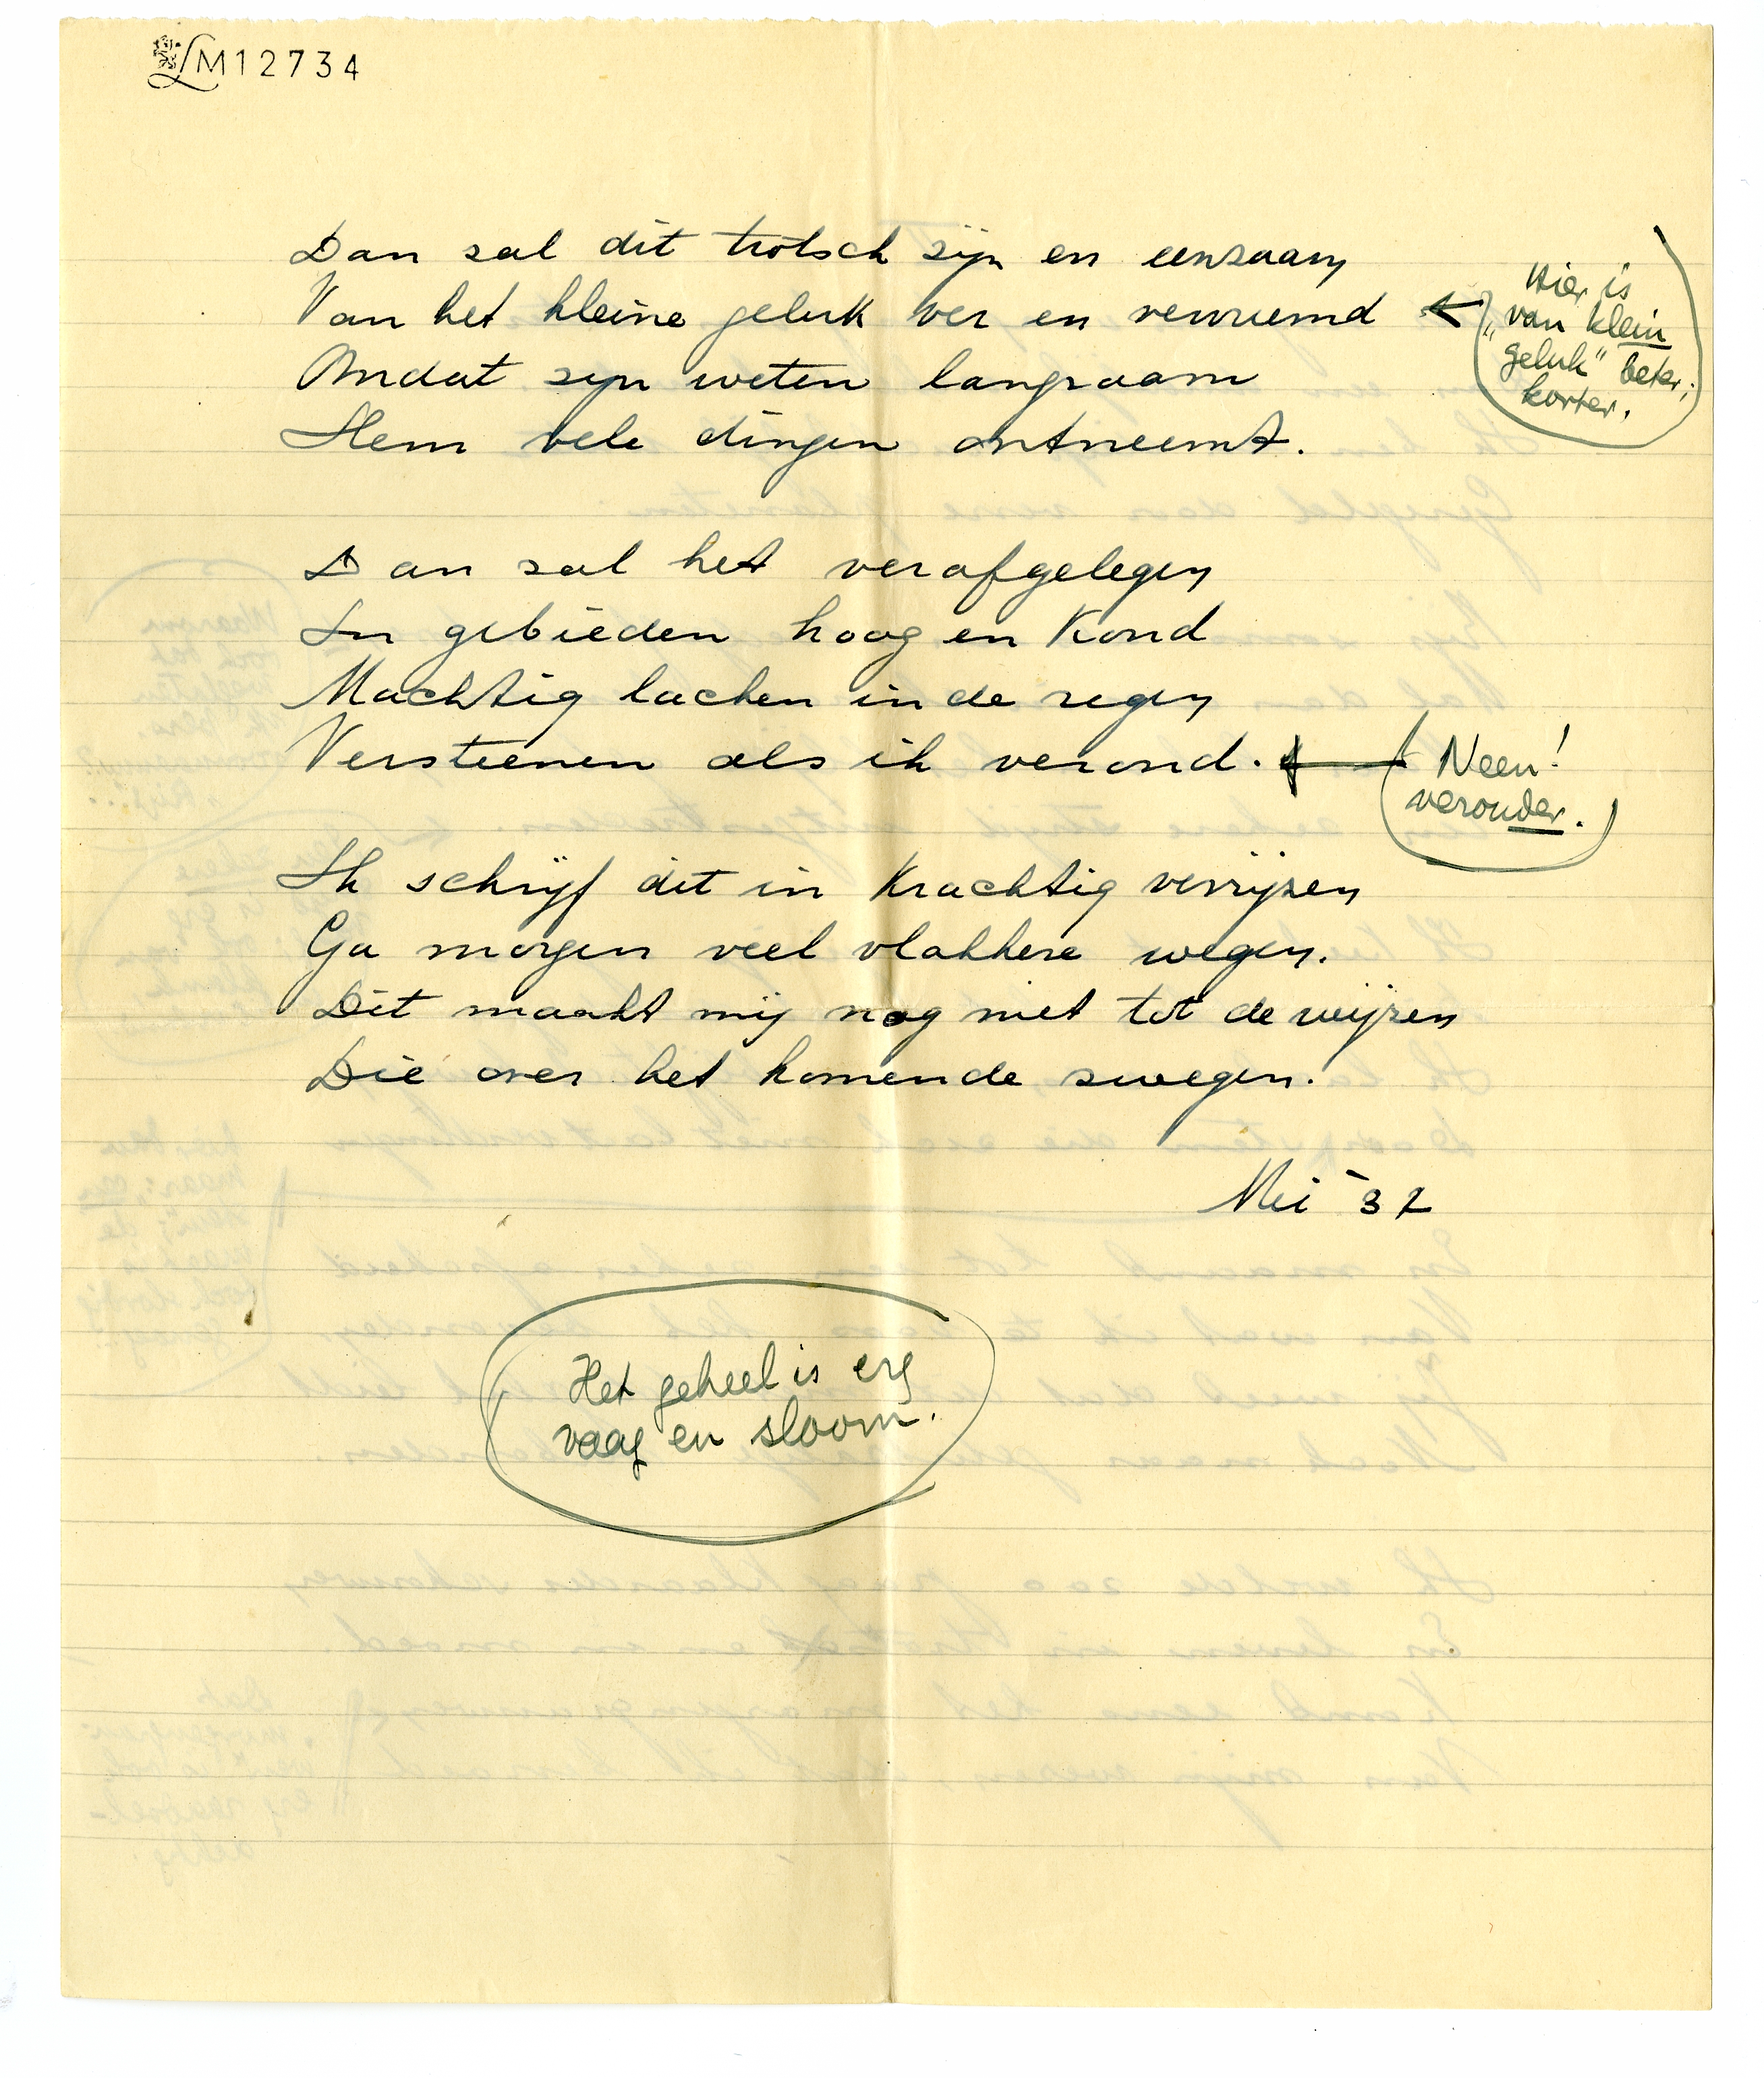 LM12734
Dan zal dit trotsch zijn en eenzaam
Van het kleine geluk ver en vervreemd
Hier is
"van klein
geluk" beter;
korter.
Omdat zijn weten langzaam
Hem vele dingen ontneemt.
Dan zal het verafgelegen
In gebieden hoog en koud
Machtig lachen in de regen
Versteenen als ik veroud.
Neen!
verouder.
Ik schrijf dit in krachtig verrijzen
Ga morgen veel vlakkere wegen.
Dit maakt mij nog niet tot de wijzen
Die over het komende zwegen.
Mei '32
Het geheel is erg
vaag en sloom.